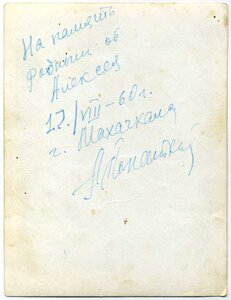 На память
от
Алексея
17/VIII-60г.
г. Махачкала